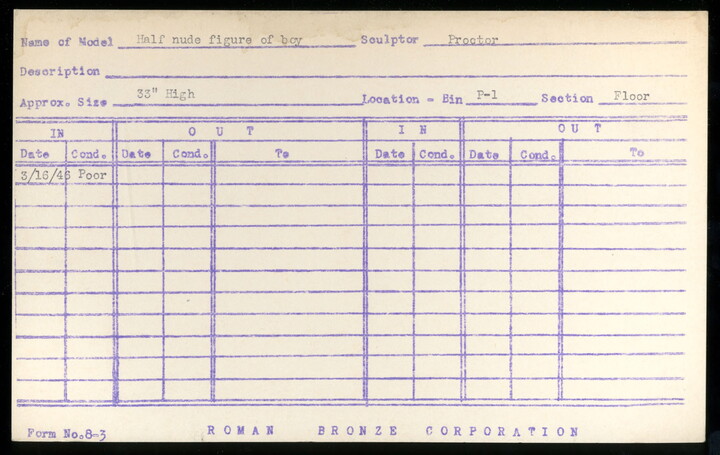 Name of Model Half nude figure of boy Sculptor Proctor
Description
Approx. Size 33" High Location - Bin P-1 Section Floor
IN OUT IN OUT
Date Cond. Date Cond. To Date Cond. Date Cond. To
3/16/46 Poor
Form No. 8-3 ROMAN BRONZE CORPORATION